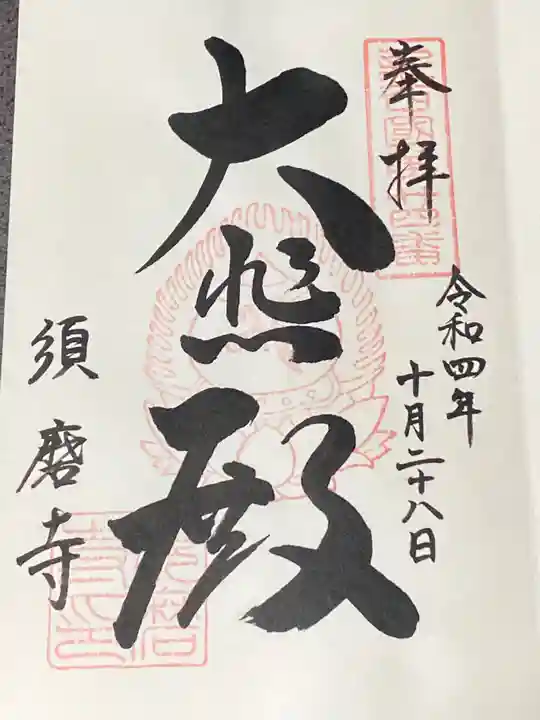 奉拝
令和四年
十月二十八日
大悲殿
須磨寺